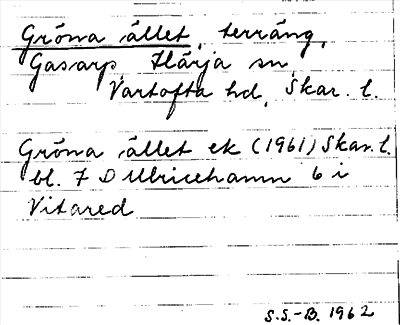 Gröna ället, terräng,
Gasarp, Härja sn,
Vartofta hd, Skar. l.
Gröna ället ek (1961) Skar. l.
bl. 7 D Ulricehamn 6 i
Vitared
S.S.-B. 1962